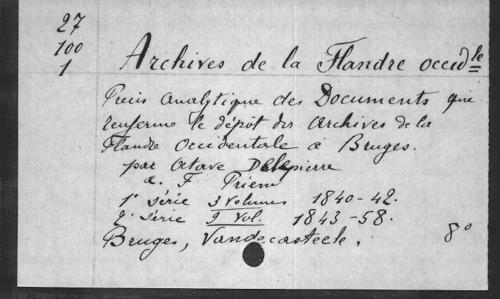 27
100
1
Archives de la Flandre occidle
Precis analytique des Documents que
renferme le dépôt des archives de la
Flandre occidentale à Bruges.
par Octave Delepierre
& F Priem
1e série 3 volumes 1840-42.
2e série 9 vol. 1843-58.
Bruges, Vandecasteele. 8o